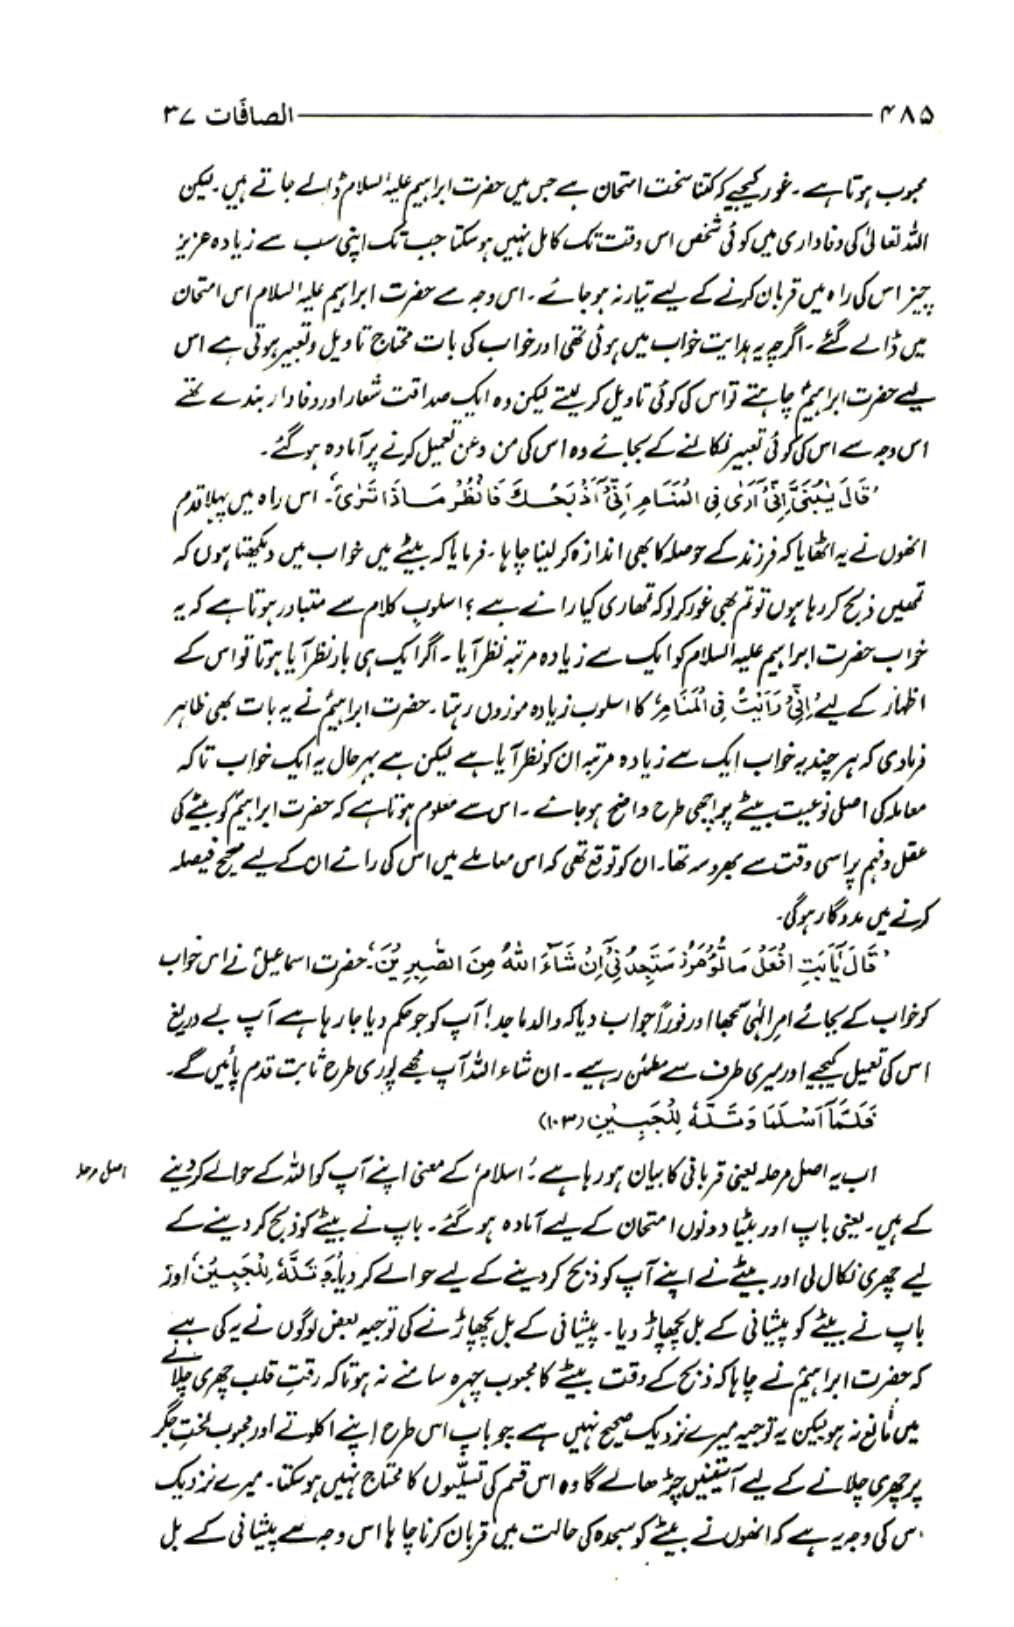 ۴۸۵ ــــــــــ الصافّات ۳۷
محبوب ہوتا ہے۔ غور کیجیے کہ کتنا سخت امتحان ہے جس میں حضرت ابراہیم علیہ السلام ڈالے جاتے ہیں۔ لیکن
اللہ تعالیٰ کی وفاداری میں کوئی شخص اس وقت تک کامل نہیں ہو سکتا جب تک اپنی سب سے زیادہ عزیز
چیز اس کی راہ میں قربان کرنے کے لیے تیار نہ ہو جائے۔ اس وجہ سے حضرت ابراہیم علیہ السلام اس امتحان
میں ڈالے گئے۔ اگرچہ یہ ہدایت خواب میں ہوئی تھی اور خواب کی بات محتاج تاویل و تعبیر ہوتی ہے اس
لیے حضرت ابراہیمؑ چاہتے تو اس کی کوئی تاویل کر لیتے لیکن وہ ایک صداقت شعار اور وفادار بندے تھے
اس وجہ سے اس کی کوئی تعبیر نکالنے کے بجائے وہ اس کی من و عن تعمیل کرنے پر آمادہ ہو گئے۔
'قَالَ یٰبُنَیَّ اِنِّیْۤ اَرٰی فِی الْمَنَامِ اَنِّیْۤ اَذْبَحُکَ فَانْظُرْ مَاذَا تَرٰی'۔ اس راہ میں پہلا قدم
انھوں نے یہ اٹھایا کہ فرزند کے حوصلہ کا بھی اندازہ کر لینا چاہا۔ فرمایا کہ بیٹے میں خواب میں دیکھتا ہوں کہ
تمھیں ذبح کر رہا ہوں تو تم بھی غور کر لو کہ تمھاری کیا رائے ہے؟ اسلوبِ کلام سے متبادر ہوتا ہے کہ یہ
خواب حضرت ابراہیم علیہ السلام کو ایک سے زیادہ مرتبہ نظر آیا۔ اگر ایک ہی بار نظر آیا ہوتا تو اس کے
اظہار کے لیے 'اِنِّیْ رَاَیْتُ فِی الْمَنَامِ' کا اسلوب زیادہ موزوں رہتا۔ حضرت ابراہیمؑ نے یہ بات بھی ظاہر
فرما دی کہ ہر چند یہ خواب ایک سے زیادہ مرتبہ ان کو نظر آیا ہے لیکن ہے بہرحال یہ ایک خواب تاکہ
معاملہ کی اصلی نوعیت بیٹے پر اچھی طرح واضح ہو جائے۔ اس سے معلوم ہوتا ہے کہ حضرت ابراہیمؑ کو بیٹے کی
عقل و فہم پر اسی وقت سے بھروسہ تھا۔ ان کو توقع تھی کہ اس معاملے میں اس کی رائے ان کے لیے صحیح فیصلہ
کرنے میں مددگار ہو گی۔
'قَالَ یٰۤاَبَتِ افْعَلْ مَا تُؤْمَرُ سَتَجِدُنِیْۤ اِنْ شَآءَ اللّٰہُ مِنَ الصّٰبِرِیْنَ'۔ حضرت اسماعیلؑ نے اس خواب
کو خواب کے بجائے امرِ الٰہی سمجھا اور فوراً جواب دیا کہ والد ماجد! آپ کو جو حکم دیا جا رہا ہے آپ بے دریغ
اس کی تعمیل کیجیے اور میری طرف سے مطمئن رہیے۔ ان شاء اللہ آپ مجھے پوری طرح ثابت قدم پائیں گے۔
فَلَمَّاۤ اَسْلَمَا وَتَلَّہٗ لِلْجَبِیْنِ (۱۰۳)
اب یہ اصل مرحلہ یعنی قربانی کا بیان ہو رہا ہے۔ 'اسلام' کے معنی اپنے آپ کو اللہ کے حوالے کر دینے
اصل مرحلہ
کے ہیں۔ یعنی باپ اور بیٹا دونوں امتحان کے لیے آمادہ ہو گئے۔ باپ نے بیٹے کو ذبح کر دینے کے
لیے چھری نکال لی اور بیٹے نے اپنے آپ کو ذبح کر دینے کے لیے حوالے کر دیا۔ 'وَتَلَّہٗ لِلْجَبِیْنِ' اور
باپ نے بیٹے کو پیشانی کے بل پچھاڑ دیا۔ پیشانی کے بل پچھاڑنے کی توجیہ بعض لوگوں نے یہ کی ہے
کہ حضرت ابراہیمؑ نے چاہا کہ ذبح کے وقت بیٹے کا محبوب چہرہ سامنے نہ ہو تاکہ رقتِ قلب چھری چلانے
میں مانع نہ ہو لیکن یہ توجیہ میرے نزدیک صحیح نہیں ہے جو باپ اس طرح اپنے اکلوتے اور محبوب لختِ جگر
پر چھری چلانے کے لیے آستینیں چڑھا لے گا وہ اس قسم کی تسلیوں کا محتاج نہیں ہو سکتا۔ میرے نزدیک
اس کی وجہ یہ ہے کہ انھوں نے بیٹے کو سجدہ کی حالت میں قربان کرنا چاہا اس وجہ سے پیشانی کے بل